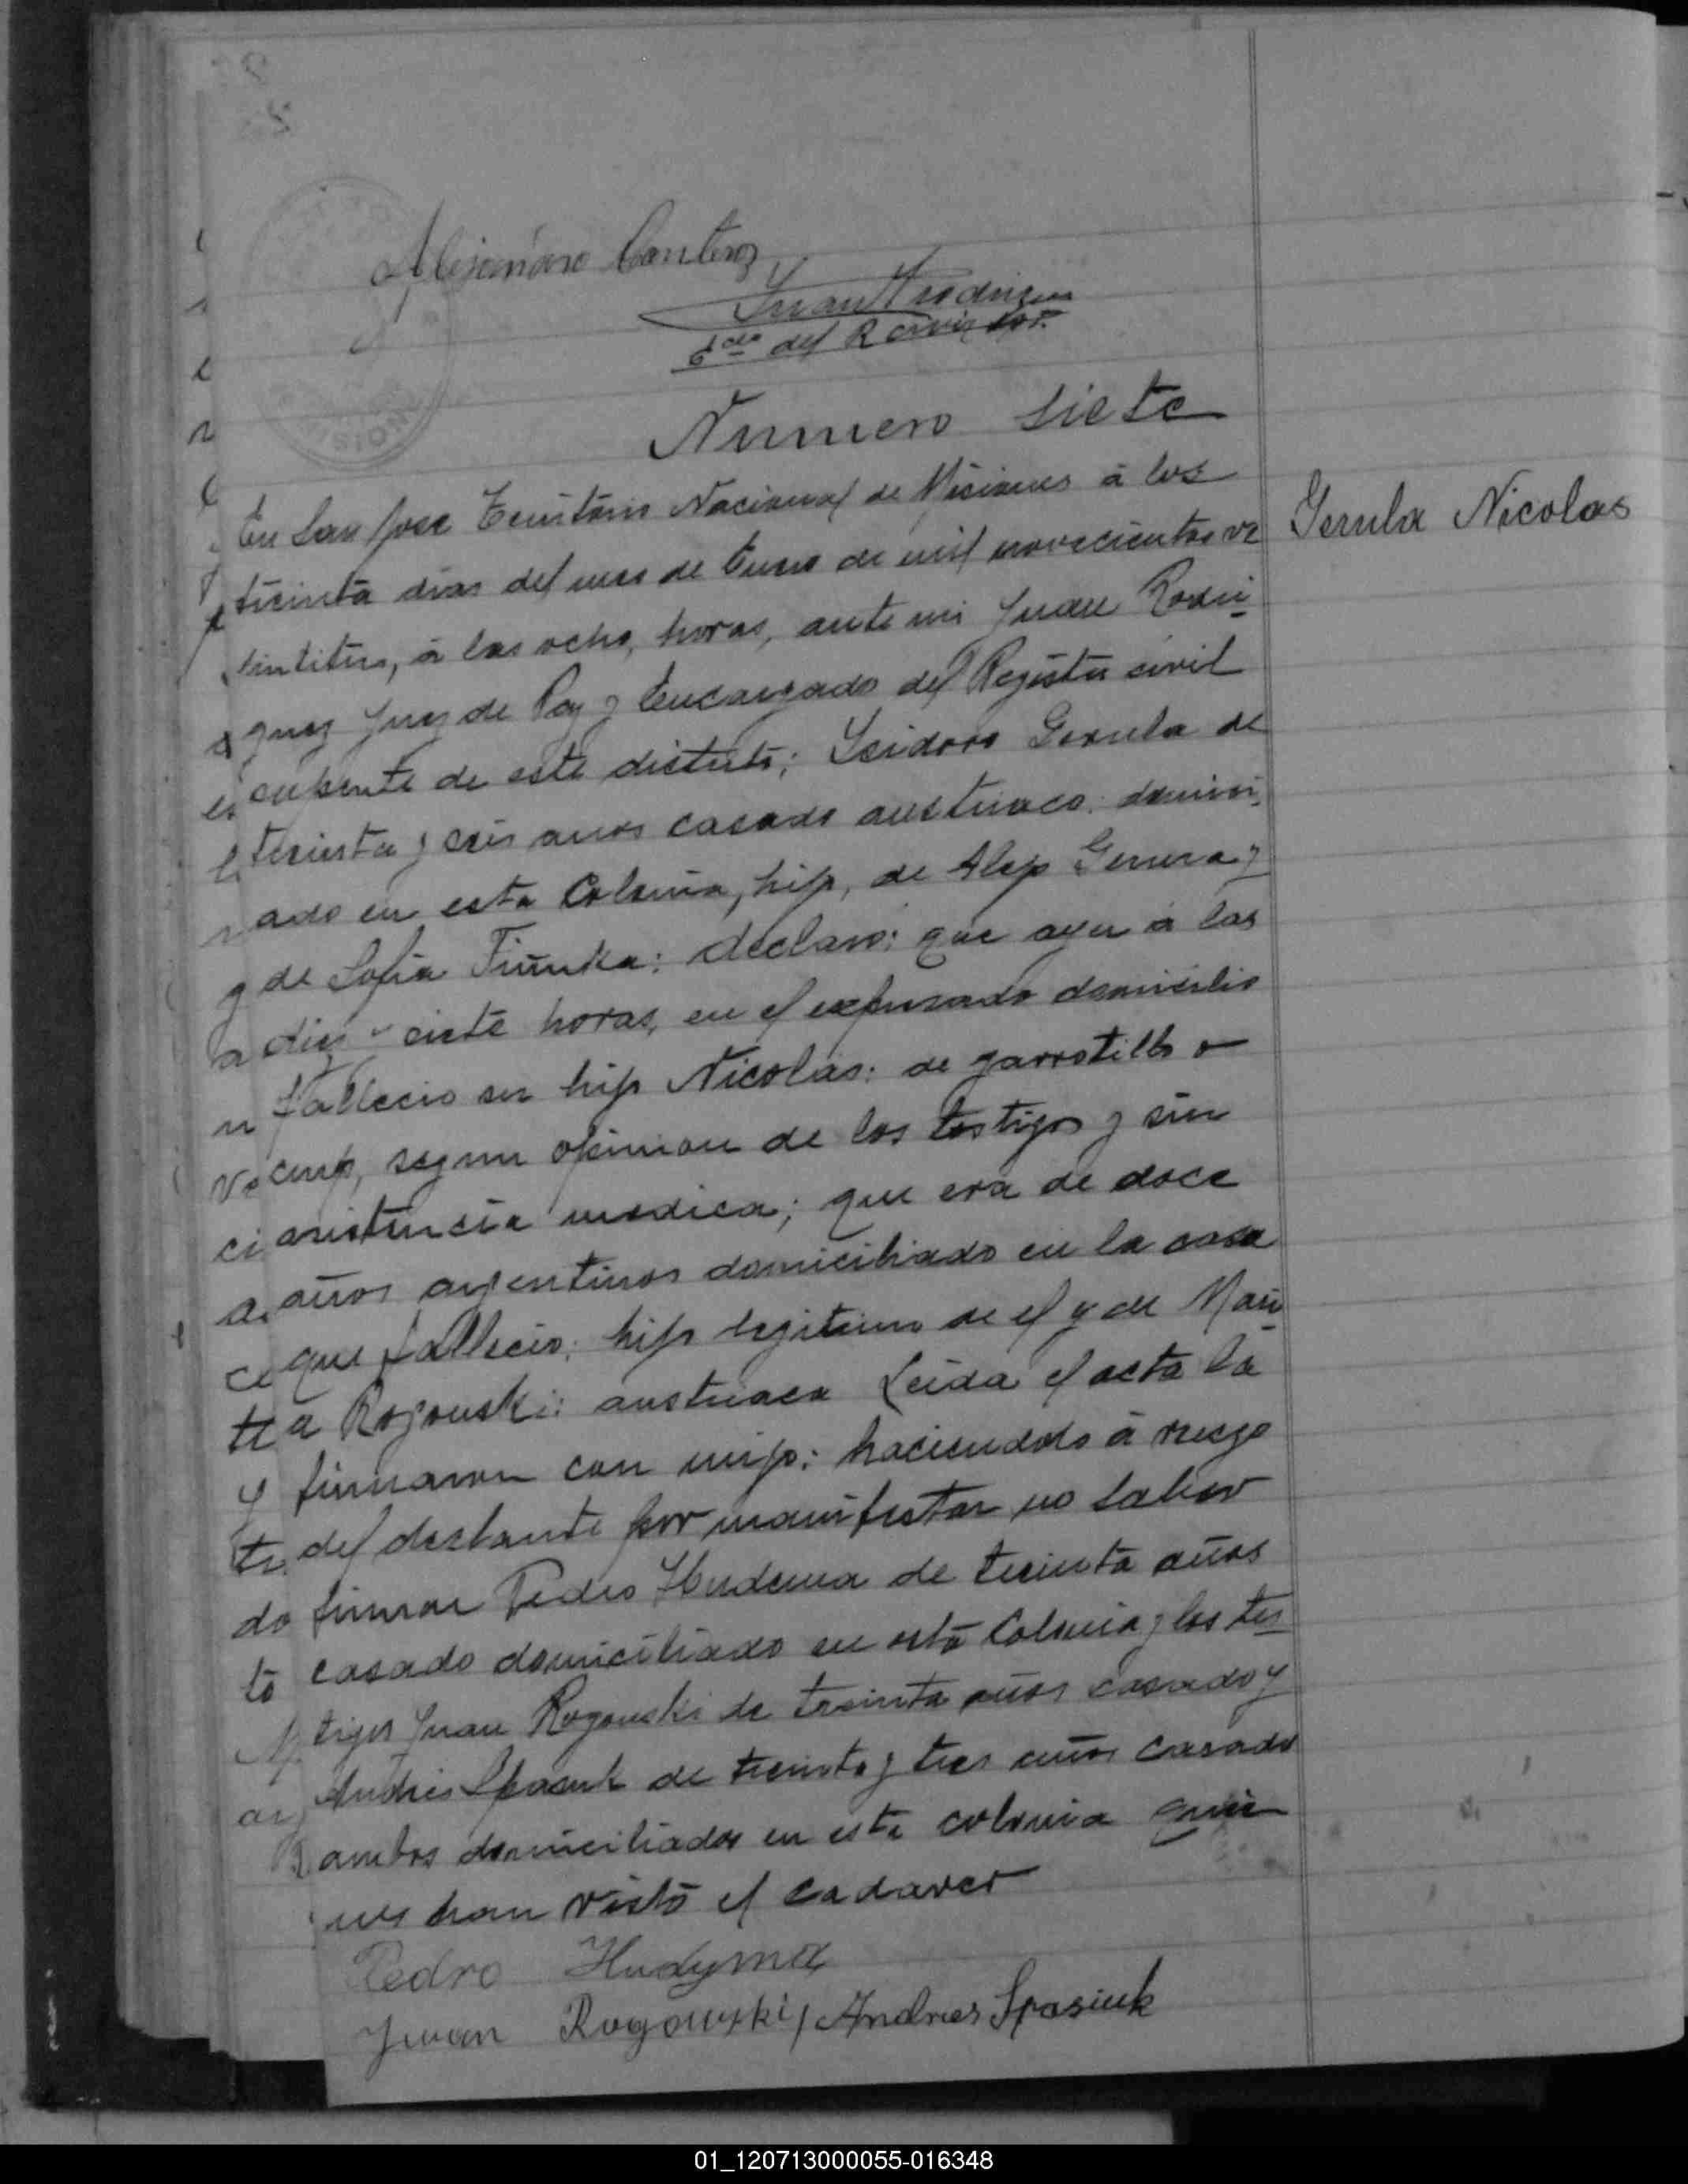 Alejandro Cantero
Juan Rodriguez
Edo del R civil
Numero siete
Gerula Nicolas
En San Jose Territorio Nacional de Misiones á los
treinta dias del mes de Enero de mil novecientos ve
intitres, á las ocho, horas, ante mi Juan Rodri
guez Juez de Paz y Encargado del Registro civil
de este distrito; Isidoro Gerula de
treinta y seis anos casado austriaco: domici
ado en esta Colonia, hijo, de Alejo Gerura y
de Sofia: declaro: que ayer á las
diez y siete horas, en el expresado domicilio
fallecio su hijo Nicolás: de garrotillo o
crup, segun opinion de los testigos y sin
asistencia medica; que era de doce
años argentinos domiciliado en la casa
que fallecio; hijo legitimo de el y de Mari
a Rogouski: austriaca Leida el acta la
firmaron con migo: haciendolo á ruego
del declarante por manifestar no saber
firmar Pedro Hudema de treinta años
casado domiciliado en esta Colonia y los tes
tigos Juan Rogouski de treinta años casado y
Andres Spasuk de treinta y tres años casado
ambos domiciliados en esta colonia quie
nes han visto el cadaver
Pedro Hudyma
Juan Rogowski / Andres Spasiuk
01_120713000055-016348